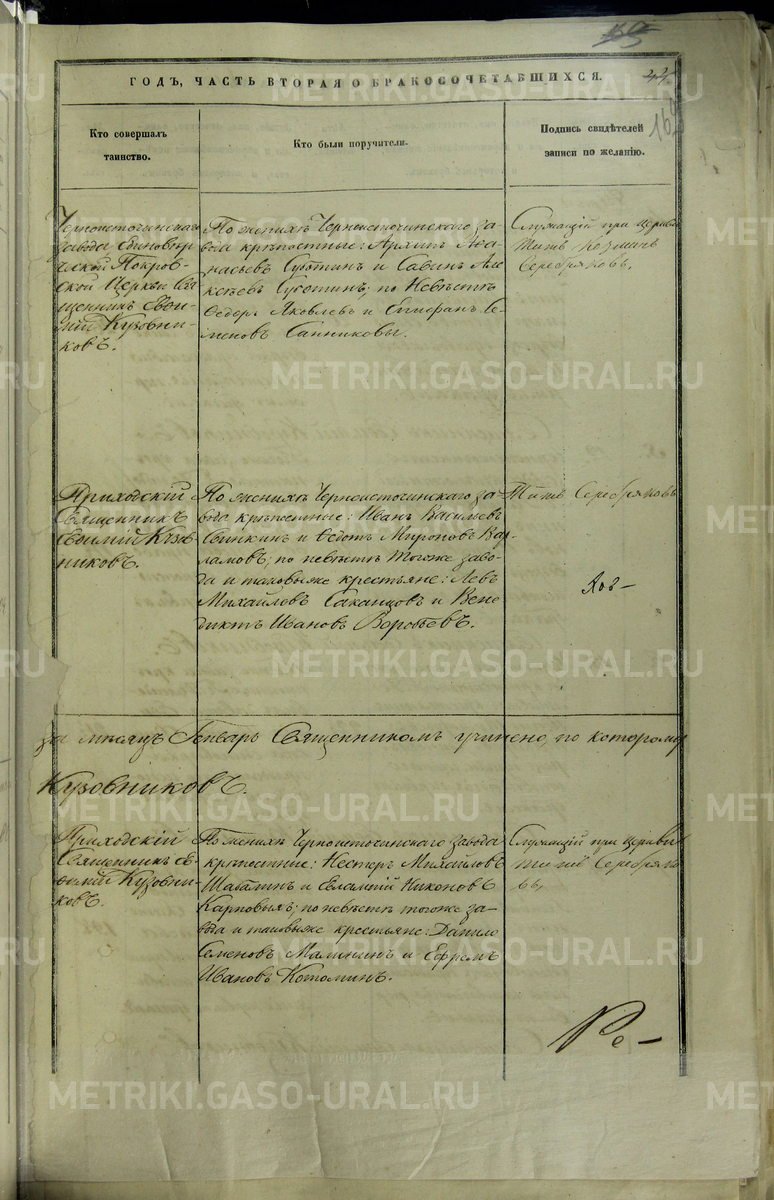 ГОДЪ, ЧАСТЬ ВТОРАЯ О БРАКОСОЧЕТАВШИХСЯ.
Кто совершалъ
таинство.
Кто были поручители.
Подпись свидѣтелей
записи по желанію.
Черноисточинскаго
завода единовѣр
ческой Покров
ской Церкви Свя
щенникъ Евѳи
мій Кузовни
ковъ.
По женихѣ Черноисточинскаго за
вода крѣпостные: Архипъ Аѳа
насьевъ Суботинъ и Савинъ Але
ксѣевъ Суботинъ; по Невѣстѣ
Ѳедоръ Яковлевъ и Епифанъ Се
меновъ Санниковы.
Служащій при церкви
Титъ
Серебряковъ,
Приходскій
Священникъ
Евѳимій Кузов
никовъ.
По женихѣ Черноисточинскаго за
вода крѣпостные: Иванъ Васильевъ
Свинкинъ и Ѳедотъ Мироновъ Вар
ламовъ; по невѣстѣ тогоже заво
да и таковыеже крестьяне: Левъ
Михайловъ Саканцовъ и Вене
диктъ Ивановъ Воробьевъ.
Титъ Серебряковъ
за мѣсяцъ Генварь Священникомъ учинено, по которому
Кузовниковъ.
Приходскій
Священникъ Ев
ѳимій Кузовни
ковъ.
По женихѣ Черноисточинскаго завода
крѣпостные: Нестеръ Михайловъ
и Евлампій Никоновъ
Карповыхъ; по невѣстѣ тогоже за
вода и таковыеже крестьяне: Данило
Семеновъ Малыгинъ и Ефремъ
Ивановъ Котоминъ.
Служащій при церкви
Титъ Серебряко
въ,
METRIKI.GASO-URAL.RU